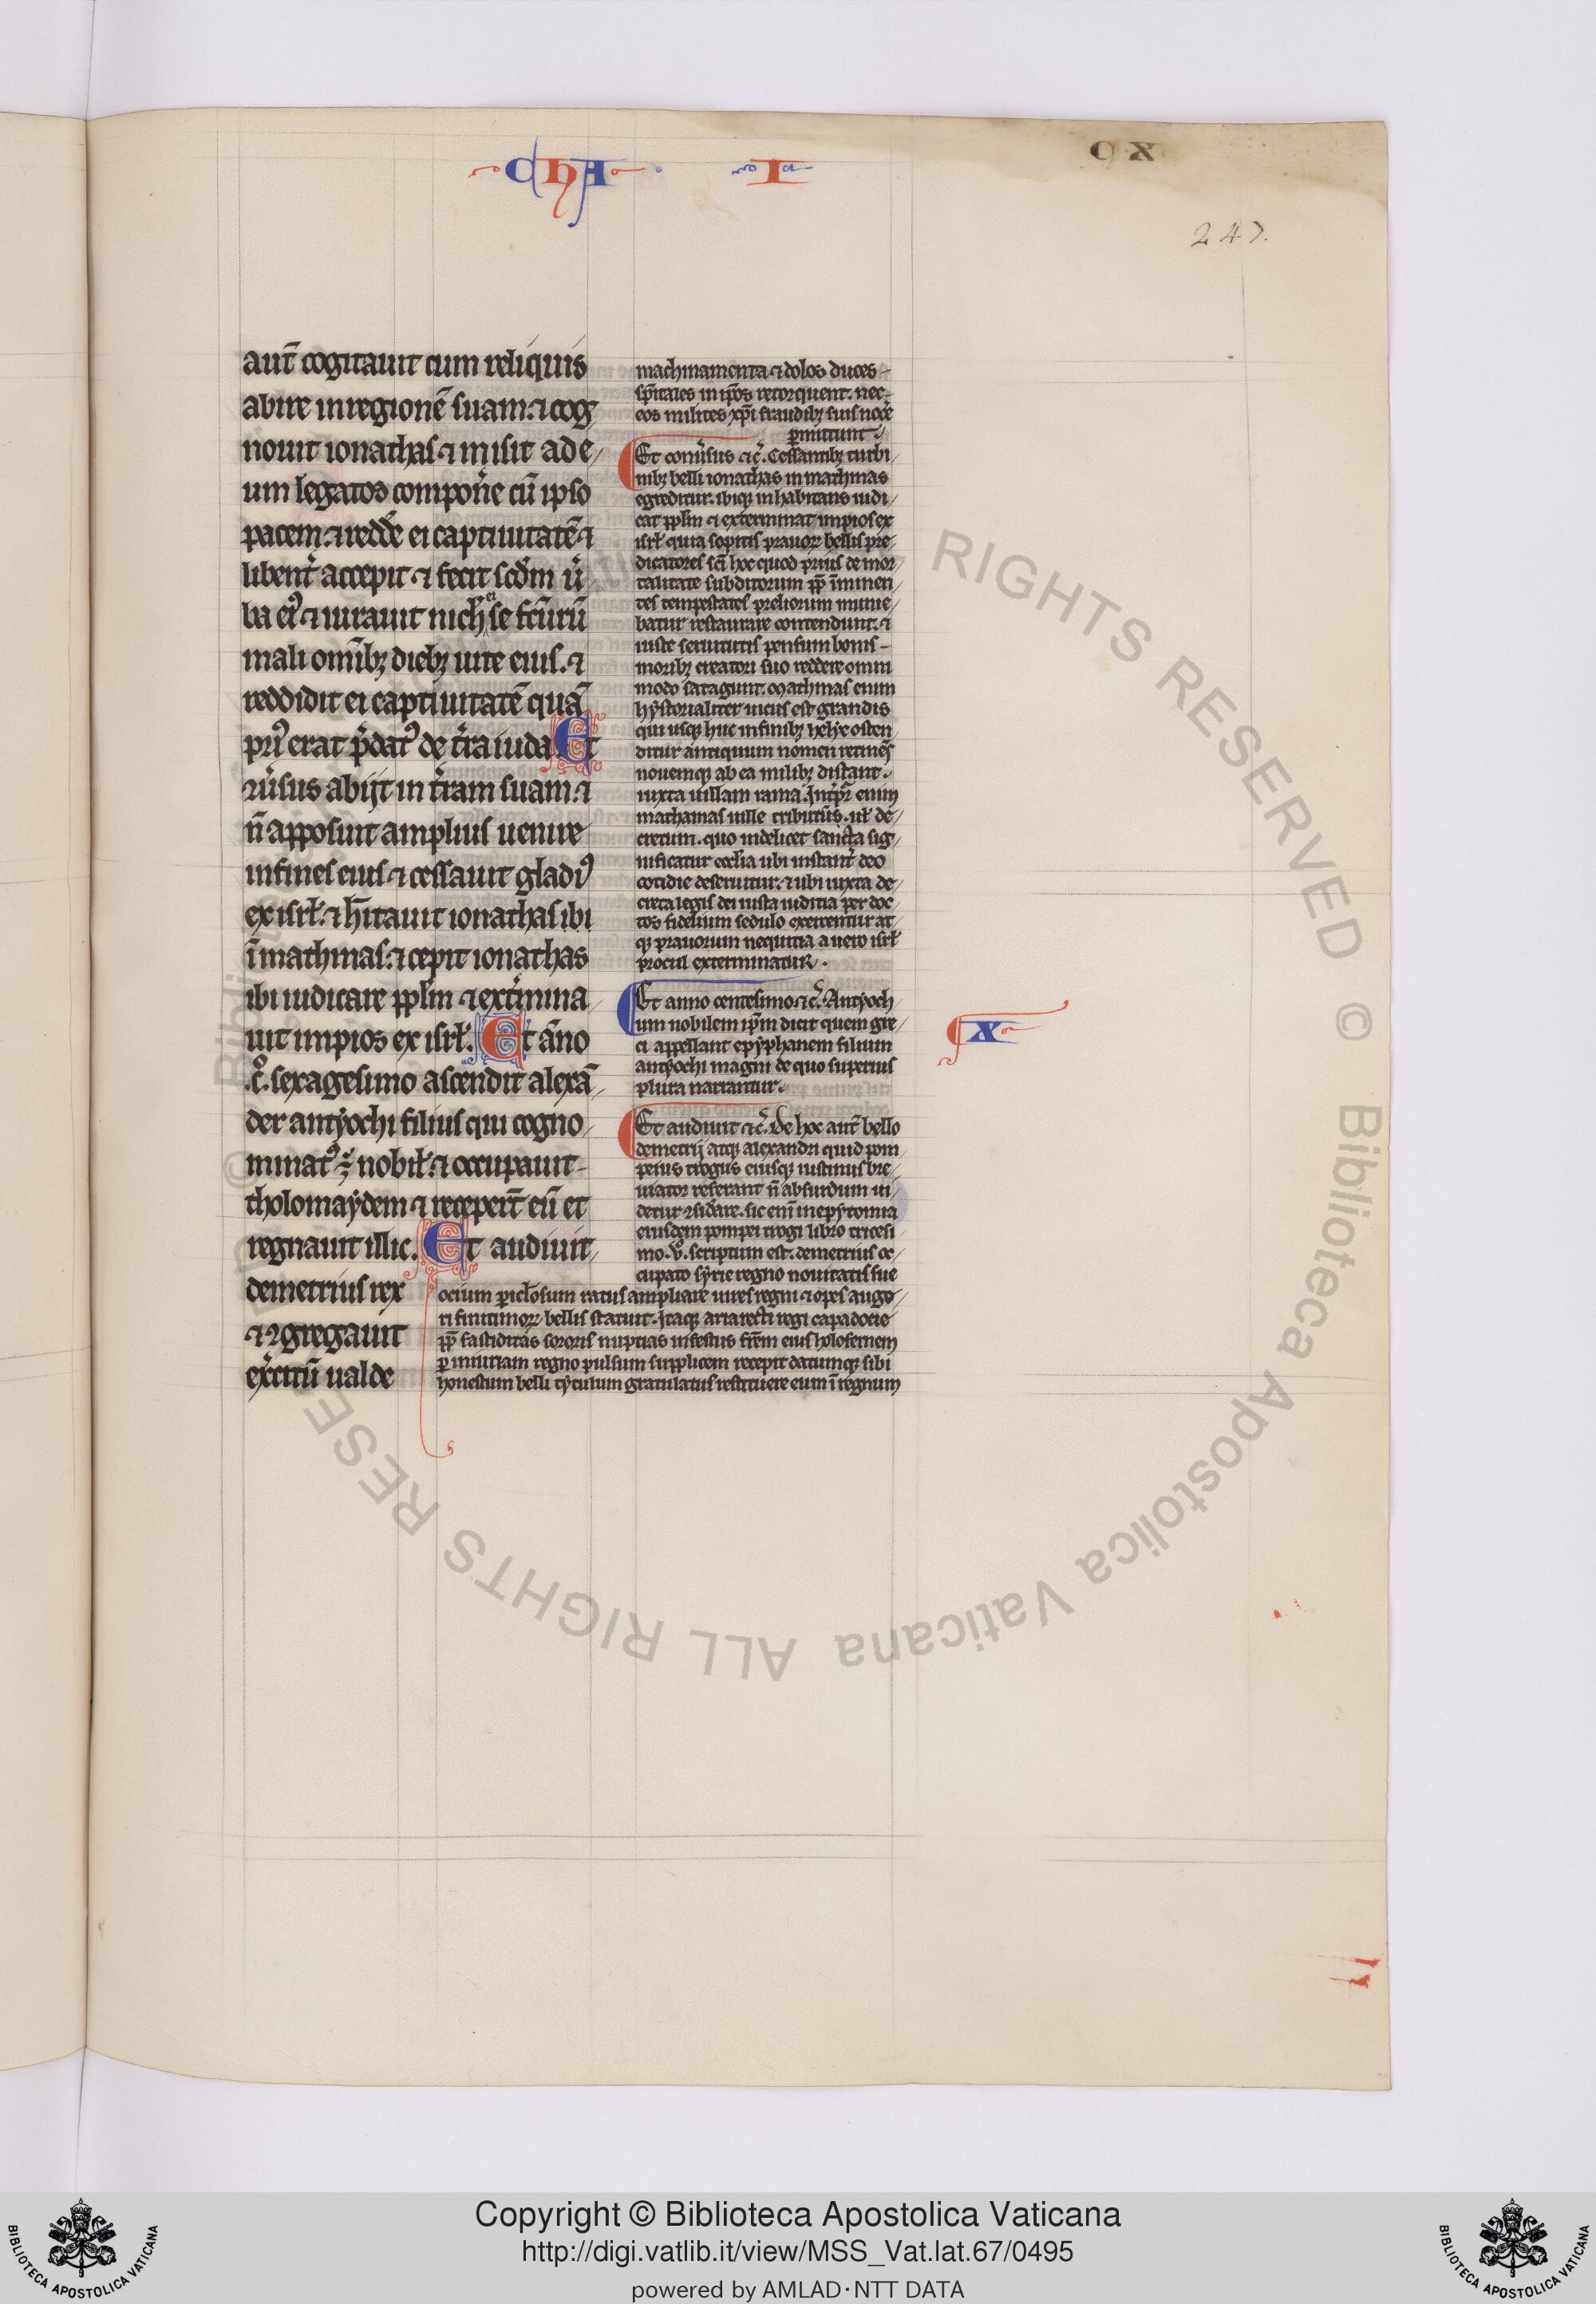 CHA I
CX
247.
aut̄ cogitauit cum reliquis
abire in regionē suam. ⁊ cog
nouit ionathas ⁊ misit ad e
um legatos compon̄e cū ipso
pacem. ⁊ redde ei captiuitatē ⁊
libent̄ accepit ⁊ fecit scd̄m u̾
ba ei᾽ ⁊ iurauit nich̄ ei se fcūrū
mali omībꝫ diebꝫ uite eius. ⁊
reddidit ei captiuitatē quā
pri᾽ erat p̄dat᾽ de t̄ra iuda Et
ꝯu̾sus abijt in t̄ram suam. ⁊
n̄ apposuit amplius uenire
in fines eius ⁊ cessauit gladi᾽
ex isrł. ⁊ h̄itauit ionathas ibi
ī machmas. ⁊ cepit ionathas
ibi iudicare pplm̄ ⁊ ext̄mina
uit impios ex isrł. Et āno
.c̊. sexagesimo ascendit alexā
der antyochi filius qui cogno
minat᾽ ÷ nobił. ⁊ occupauit
tholomaydem ⁊ recepert̄ eū et
regnauit illic. Et audiuit
demetrius rex
⁊ ꝯgregauit
ex̄citū ualde
machinamenta ⁊ dolos duces
sp̄itales in ip̄os retorquent. nec
eos milites xp̄i fraudibꝫ suis noce̾
ꝑmittunt.
Et conu̾sus ⁊c̄. Cessantibꝫ turbi
nibꝫ belli ionathas in machmas
egreditur. ibiqꝫ inhabitans iudi
cat pplm̄ ⁊ exterminat impios ex
isrł quia sopitis prauoꝝ bellis pre
dicatores sc̄i hoc quod prius de mor
talitate subditorum pp̄ īminen
tes tempestates preliorum minue
batur restaurare contendunt. ⁊
iuste seruitutis pensum bonis
moribꝫ creatori suo reddere omni
modo satagunt. Machmas enim
hystorialiter uicus est grandis
qui usqꝫ huc in finibꝫ helye osten
ditur antiquum nomen retinēs
nouemqꝫ ab ea milibꝫ distant.
iuxta uillam rama. Int̄pr̄ enim
machmas ille tributus. ul̄ de
cretum. quo uidelicet sancta sig
nificatur eccl̄ia ubi instant̄ deo
cotidie deseruitur. ⁊ ubi iuxta de
creta legis dei iusta iuditia per doc
tos fidelium sedulo exercentur at
qꝫ prauorum nequitia a uero isrł
procul exterminatur.
Et anno centesimo ⁊c̄. Antyoch
um nobilem ip̄m dicit quem gre
ci appellant epyphanem filium
antyochi magni de quo superius
plura narrantur.
X
Et audiuit ⁊c̄. De hoc aut̄ bello
demetrij atqꝫ alexandri quid pom
peius trogus eiusqꝫ iustinus bre
uiator referant n̄ absurdum ui
detur ꝯsid̾are. sic enī in epytomia
eiusdem pompei trogi libro tricesi
mo.v̊. scriptum est. demetrius oc
cupato syrie regno nouitatis sue
ocium ꝑicl̄osum ratus ampliare uires regni ⁊ opes auge
ri finitimoꝝ bellis statuit. Itaqꝫ ariarecti regi capadocie
pp̄ fastiditas sororis nuptias infestus fr̄em eius holofernem
ꝑ iniuriam regno pulsum supplicem recepit datumqꝫ sibi
honestum belli tytulum gratulatus restituere eum ī regnum
© Biblioteca Apostolica Vaticana ALL RIGHTS RESERVED
Copyright © Biblioteca Apostolica Vaticana
http://digi.vatlib.it/view/MSS_Vat.lat.67/0495
powered by AMLAD·NTT DATA
BIBLIOTECA APOSTOLICA VATICANA
BIBLIOTECA APOSTOLICA VATICANA